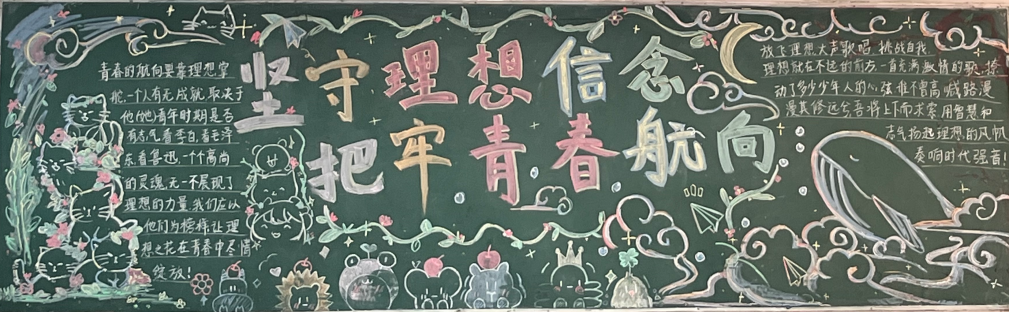 青春的航向要靠理想掌
舵,一个人有无成就,取决于
他(她)青年时期是否
有志气看李白,看毛泽
东看鲁迅,一个个高尚
的灵魂,无一不展现了
理想的力量,我们应以
他们为榜样,让理
想之花在青春中尽情
绽放!
坚守理想信念
把牢青春航向
放飞理想大声歌唱 挑战自我
理想就在不远的前方一首充满激情的歌,撩
动了多少少年人的心弦谁不曾高喊路漫
漫其修远兮吾将上下而求索 用智慧和
志气扬起理想的风帆
奏响时代强音!